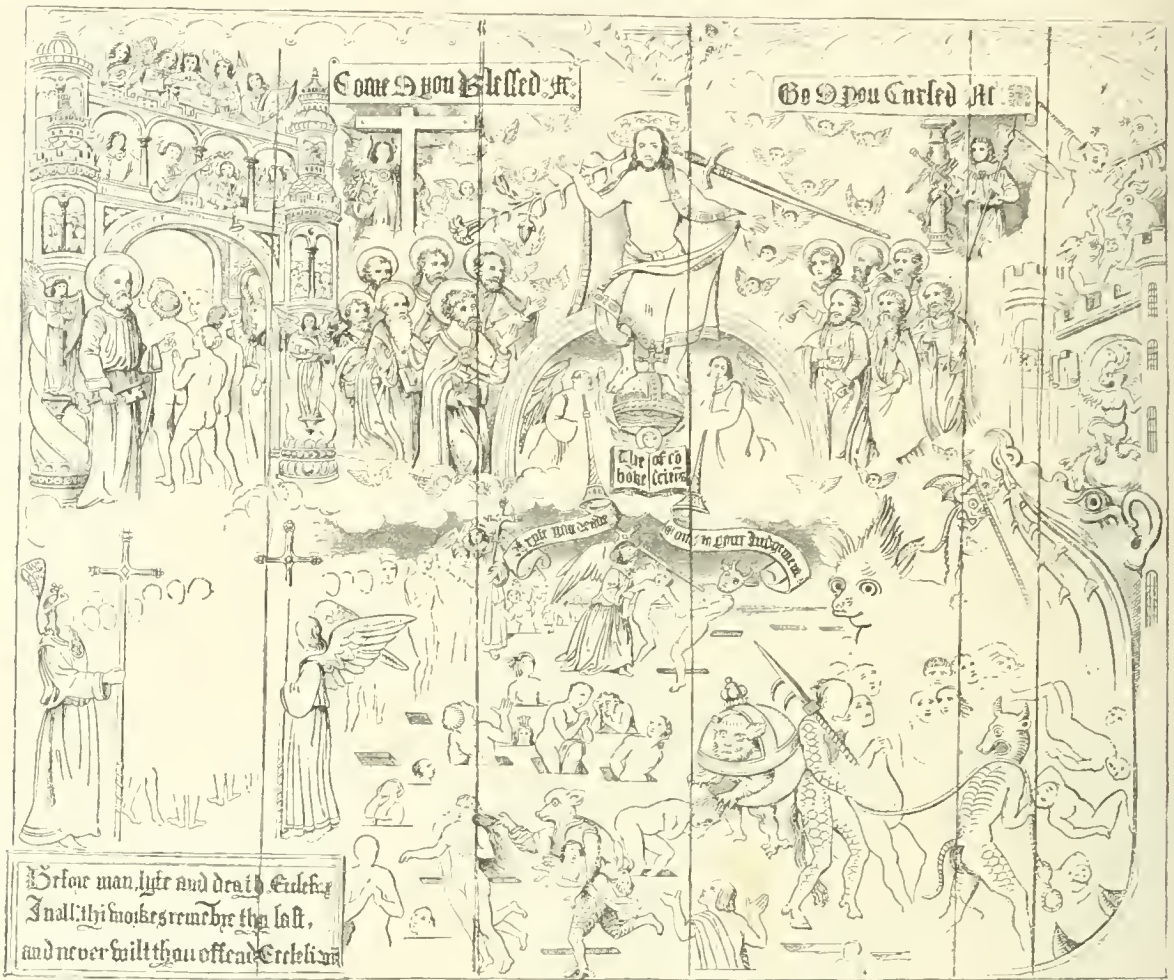 Come you Blessed &c
Go you Cursed &c
The of co
boke sciens
Aryse you deade
come to your Judgement
Before man, lyfe and death, Eclesi
In all thi workes remembre thy last,
and never wilt thou offend Ecclesi